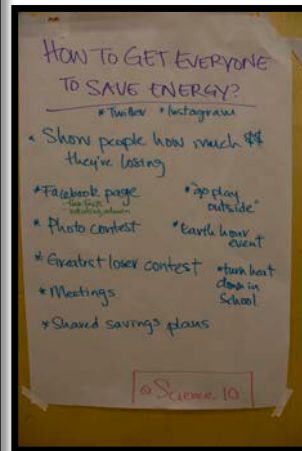 HOW TO GET EVERYONE
TO SAVE ENERGY?
* Twitter * Instagram
* Show people how much $$
they're losing
* Facebook page
* "go play
outside"
* Photo contest
* Earth hour
event
* Greatest loser contest
* turn heat
down in
School
* Meetings
* Shared savings plans
Science 10